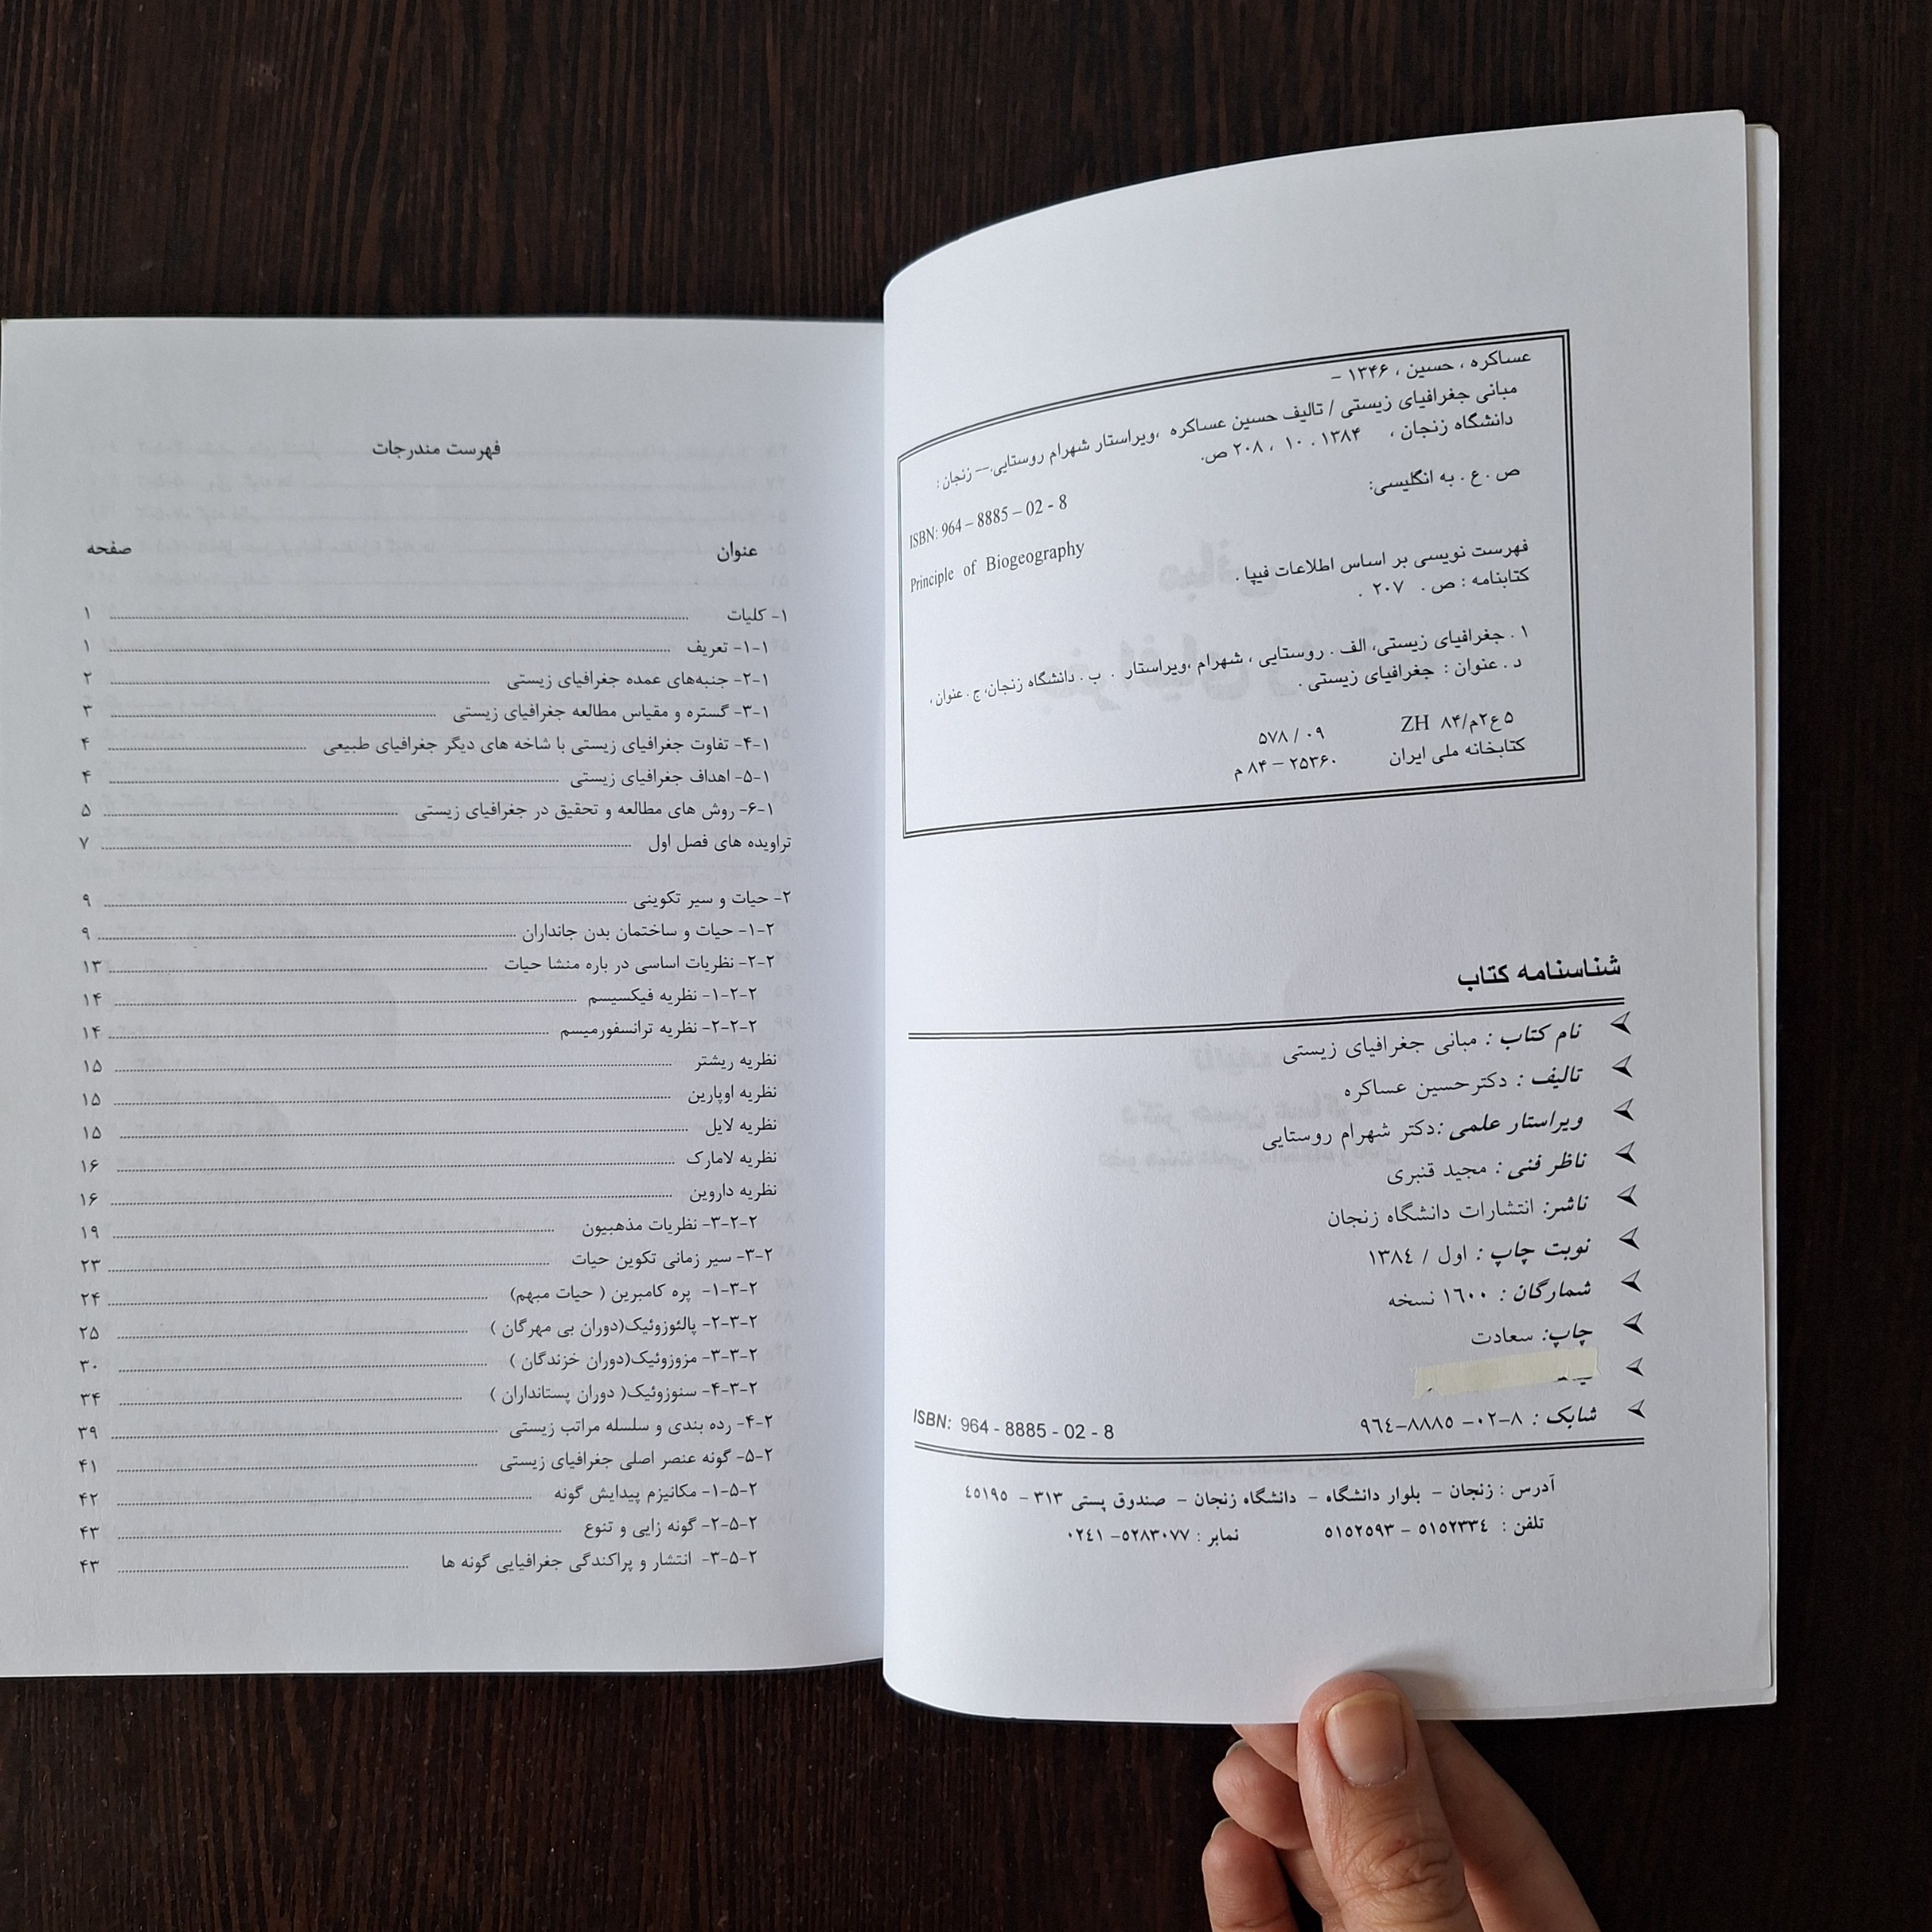 عساکره ، حسین ، ۱۳۴۶ –
مبانی جغرافیای زیستی / تالیف حسین عساکره ،ویراستار شهرام روستایی.— زنجان :
دانشگاه زنجان ، ۱۳۸۴ . ۱۰ ، ۲۰۸ ص.
ISBN: 964 – 8885 – 02 - 8
ص . ع . به انگلیسی:
Principle of Biogeography
فهرست نویسی بر اساس اطلاعات فیپا .
کتابنامه : ص . ۲۰۷ .
۱ . جغرافیای زیستی، الف . روستایی ، شهرام ،ویراستار . ب . دانشگاه زنجان، ج . عنوان ،
د . عنوان : جغرافیای زیستی .
۵ع۲م/۸۴ ZH ۵۷۸ / ۰۹
کتابخانه ملی ایران ۲۵۳۶۰ – ۸۴ م
شناسنامه کتاب
نام کتاب : مبانی جغرافیای زیستی
تالیف : دکترحسین عساکره
ویراستار علمی :دکتر شهرام روستایی
ناظر فنی : مجید قنبری
ناشر: انتشارات دانشگاه زنجان
نوبت چاپ : اول / ١٣٨٤
شمارگان : ١٦٠٠ نسخه
چاپ: سعادت
شابک : ٨–٠٢– ٨٨٨٥–٩٦٤ ISBN: 964 - 8885 - 02 - 8
آدرس : زنجان – بلوار دانشگاه – دانشگاه زنجان – صندوق پستی ٣١٣ – ٤٥١٩٥
تلفن : ٥١٥٢٣٣٤ – ٥١٥٢٥٩٣ نمابر : ٥٢٨٣٠٧٧– ٠٢٤١
فهرست مندرجات
عنوان صفحه
۱- کلیات ۱
۱-۱- تعریف ۱
۱-۲- جنبه‌های عمده جغرافیای زیستی ۲
۱-۳- گستره و مقیاس مطالعه جغرافیای زیستی ۳
۱-۴- تفاوت جغرافیای زیستی با شاخه های دیگر جغرافیای طبیعی ۴
۱-۵- اهداف جغرافیای زیستی ۴
۱-۶- روش های مطالعه و تحقیق در جغرافیای زیستی ۵
تراویده های فصل اول ۷
۲- حیات و سیر تکوینی ۹
۲-۱- حیات و ساختمان بدن جانداران ۹
۲-۲- نظریات اساسی در باره منشا حیات ۱۳
۲-۲-۱- نظریه فیکسیسم ۱۴
۲-۲-۲- نظریه ترانسفورمیسم ۱۴
نظریه ریشتر ۱۵
نظریه اوپارین ۱۵
نظریه لایل ۱۵
نظریه لامارک ۱۶
نظریه داروین ۱۶
۲-۲-۳- نظریات مذهبیون ۱۹
۲-۳- سیر زمانی تکوین حیات ۲۳
۲-۳-۱- پره کامبرین ( حیات مبهم) ۲۴
۲-۳-۲- پالئوزوئیک(دوران بی مهرگان ) ۲۵
۲-۳-۳- مزوزوئیک(دوران خزندگان ) ۳۰
۲-۳-۴- سنوزوئیک( دوران پستانداران ) ۳۴
۲-۴- رده بندی و سلسله مراتب زیستی ۳۹
۲-۵- گونه عنصر اصلی جغرافیای زیستی ۴۱
۲-۵-۱- مکانیزم پیدایش گونه ۴۲
۲-۵-۲- گونه زایی و تنوع ۴۳
۲-۵-۳- انتشار و پراکندگی جغرافیایی گونه ها ۴۳